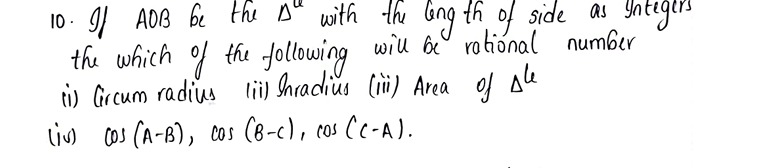 10. If AOB be the Δle with the length of side as Integers
the which of the following will be rational number
(i) Circum radius (ii) Inradius (iii) Area of Δle
(iv) cos (A-B), cos (B-c), cos (C-A).